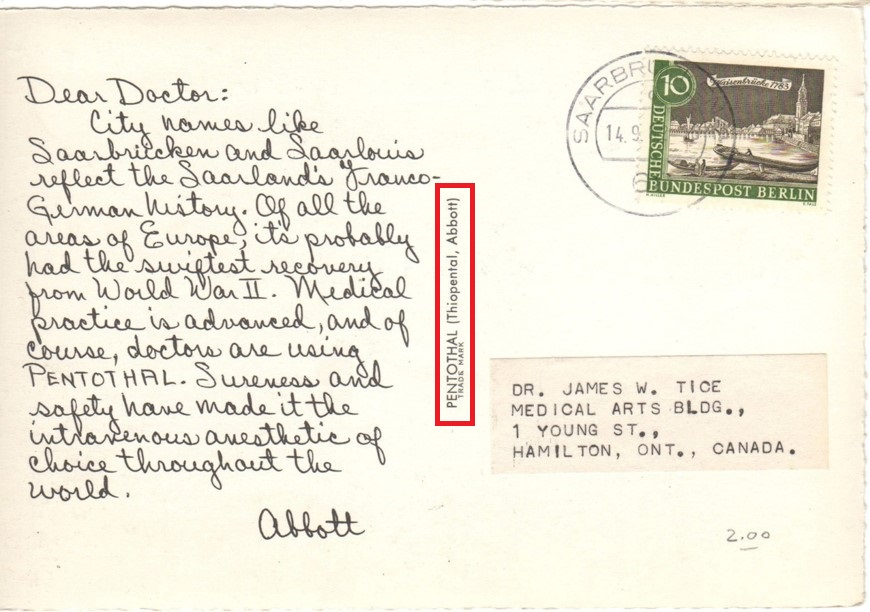 Dear Doctor:
City names like
Saarbrücken and Saarlouis
reflect the Saarland's Franco-
German history. Of all the
areas of Europe, it's probably
had the swiftest recovery
from World War II. Medical
practice is advanced, and of
course, doctors are using
PENTOTHAL. Sureness and
safety have made it the
intravenous anesthetic of
choice throughout the
world.
Abbott
PENTOTHAL (Thiopental, Abbott)
TRADE MARK
SAARBRÜ
14.9.
10
1783
DEUTSCHE
BUNDESPOST BERLIN
DR. JAMES W. TICE
MEDICAL ARTS BLDG.,
1 YOUNG ST.,
HAMILTON, ONT., CANADA.
2.00